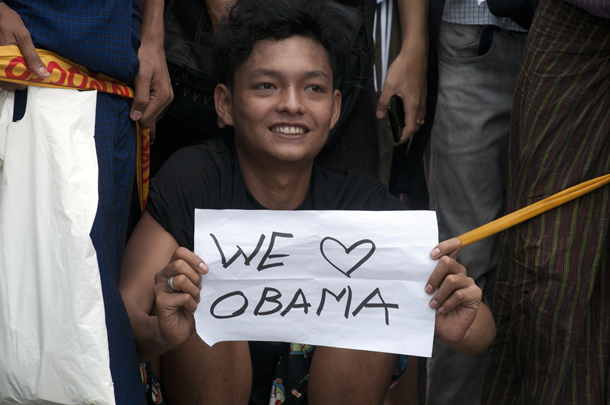 WE ♡
OBAMA